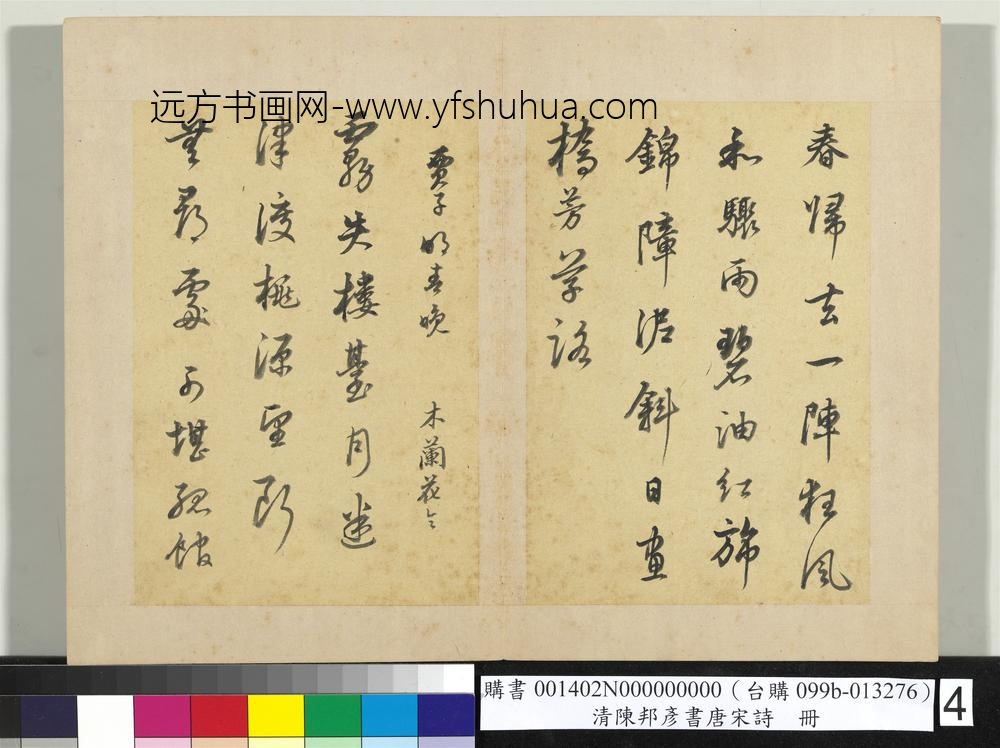 远方书画网-www.yfshuhua.com
春歸去一陣狂風
和驟雨碧油紅旆
錦障泥斜日畫
橋芳草路
賈子明春晚 木蘭花令
霧失樓臺月迷
津渡桃源望斷
無尋處可堪孤館
購書 001402N000000000（台購 099b-013276）
清陳邦彥書唐宋詩 冊
4